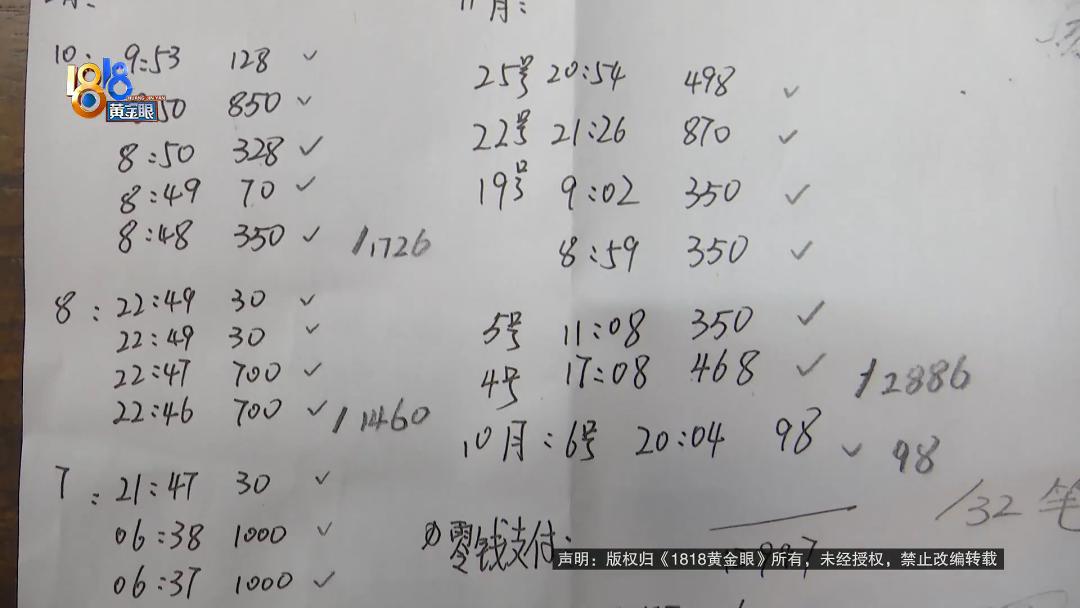 10: 9:53 128 ✓
:50 850 ✓
8:50 328 ✓
8:49 70 ✓
8:48 350 ✓ /1726
8: 22:49 30 ✓
22:49 30 ✓
22:47 700 ✓
22:46 700 ✓ /1460
7: 21:47 30 ✓
06:38 1000 ✓
06:37 1000 ✓
11月:
25号 20:54 498 ✓
22号 21:26 870 ✓
19号 9:02 350 ✓
8:59 350 ✓
5号 11:08 350 ✓
4号 17:08 468 ✓ /2886
10月:6号 20:04 98 ✓ 98
/32笔
零钱支付:
1818
HUANG JIN YAN
黄金眼
声明：版权归《1818黄金眼》所有，未经授权，禁止改编转载